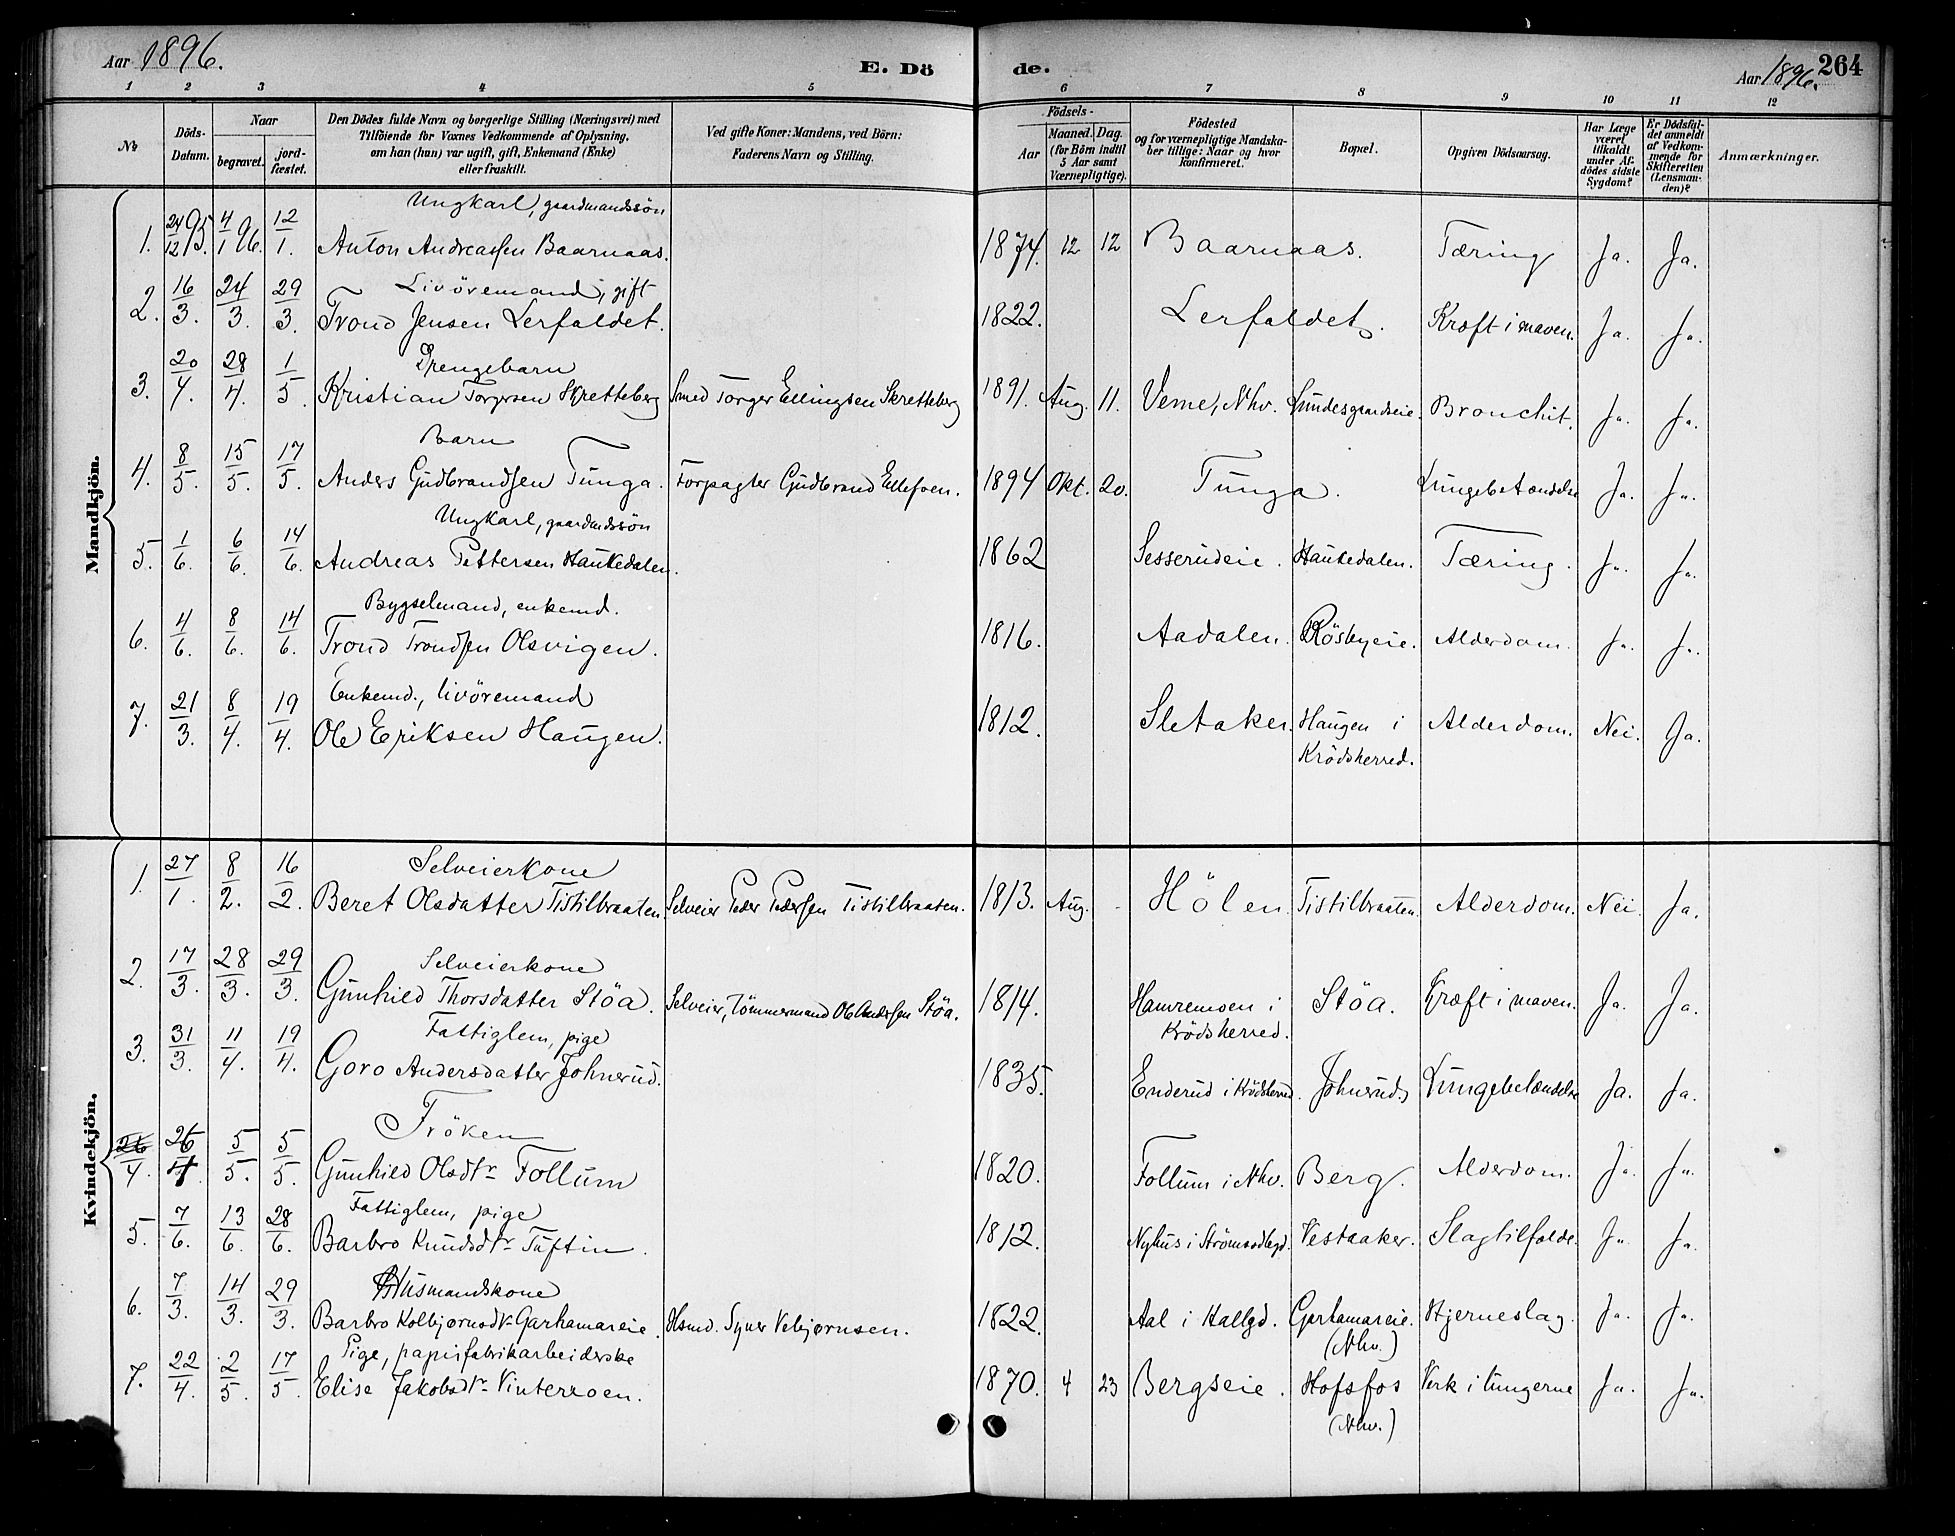 Aar 1896.
E. Dö de.
Aar 1896.
264
1 2 3 4 5 6 7 8 9 10 11 12
№
Döds-Datum.
Naar
begravet.
jord-fæstet.
Den Dödes fulde Navn og borgerlige Stilling (Næringsvei) med
Tilföiende for Voxnes Vedkommende af Oplysning,
om han (hun) var ugift, gift, Enkemand (Enke)
eller fraskilt.
Ved gifte Koner: Mandens, ved Börn:
Faderens Navn og Stilling.
Födsels-
Aar
Maaned. Dag.
(for Börn indtil
5 Aar samt
Værnepligtige).
Födested
og for værnepligtige Mandska-
ber tillige: Naar og hvor
konfirmeret.
Bopæl.
Opgiven Dödsaarsag.
Har Læge
været
tilkaldt
under Af-
dödes sidste
Sygdom?
Er Dödsfal-
det anmeldt
af Vedkom-
mende for
Skifteretten
(Lensman-
den)?
Anmærkninger.
Mandkjön.
Ungkarl, gaardmandssön
1. 24/12 95. 4/1 96. 12/1. Anton Andreassen Baarnaas. 1874. 12 12 Baarnaas. Tæring Ja. Ja.
Livöremand, gift
2. 16/3. 24/3. 29/3. Trond Jensen Lerfaldet. 1822. Lerfaldet. Kræft i maven. Ja. Ja.
Drengebarn
3. 20/4. 28/4. 1/5. Kristian Torgersen Skretteberg Smed Torger Ellingsen Skretteberg 1891. Aug. 11. Veme, Nhv. Lundesgaardseie. Bronchit. Ja. Ja.
Barn
4. 8/5. 15/5. 17/5. Anders Gudbrandsen Tunga. Forpagter Gudbrand Ellefsen. 1894 Okt. 20. Tunga. Lungebetændelse Ja. Ja.
Ungkarl, gaardmdssön
5. 1/6. 6/6. 14/6. Andreas Pettersen Haukedalen. 1862 Sesserudeie. Haukedalen. Tæring. Ja. Ja.
Bygselmand, enkemd.
6. 4/6. 8/6. 14/6. Trond Trondsen Olsvigen. 1816. Aadalen. Rösbyeie. Alderdom. Ja. Ja.
Enkemd., livöremand
7. 21/3. 8/4. 19/4. Ole Eriksen Haugen. 1812. Sletaker. Haugen i Alderdom. Nei. Ja.
Krödsherred.
Kvindekjön.
Selveierkone
1. 27/1. 8/2. 16/2. Beret Olsdatter Tistilbraaten Selveier Peder Pedersen Tistilbraaten. 1813. Aug. - Hölen Tistilbraaten. Alderdom. Nei. Ja.
Selveierkone
2. 17/3. 28/3. 29/3. Gunhild Thorsdatter Stöa. Selveier, Tömmermand Ole Andersen Stöa. 1814. Hamremoen i Stöa. Kræft i maven. Ja. Ja.
Krödsherred.
Fattiglem, pige
3. 31/3. 11/4. 19/4. Goro Andersdatter Johnsrud. 1835. Enderud i Krödsherred. Johnsrud. Lungebetændelse Ja. Ja.
Fröken
26/4. 26/4. 5/5. 5/5. Gunhild Olsdtr Follum 1820. Follum i Nhv. Berg. Alderdom. Ja. Ja.
Fattiglem, pige
5. 7/6. 13/6. 28/6. Barbro Knudsdtr Tuftin. 1812. Nyhus i Strömsodbygd. Vestaaker. Slagtilfælde. Ja. Ja.
Husmandskone
6. 7/3. 14/3. 29/3. Barbro Kolbjørnsdtr Garhamareie. Hsmd. Syver Vebjørnsen. 1822. Aal i Hallgd. Garhamareie. Hjerneslag. Ja. Ja.
(Nhv.)
Pige, papirfabrikarbeiderske
7. 22/4. 2/5. 17/5. Elise Jakobsdtr Vinterroen. 1870. 4 23 Bergseie. Hofsfos Verk i lungerne Ja. Ja.
(Nhv.)